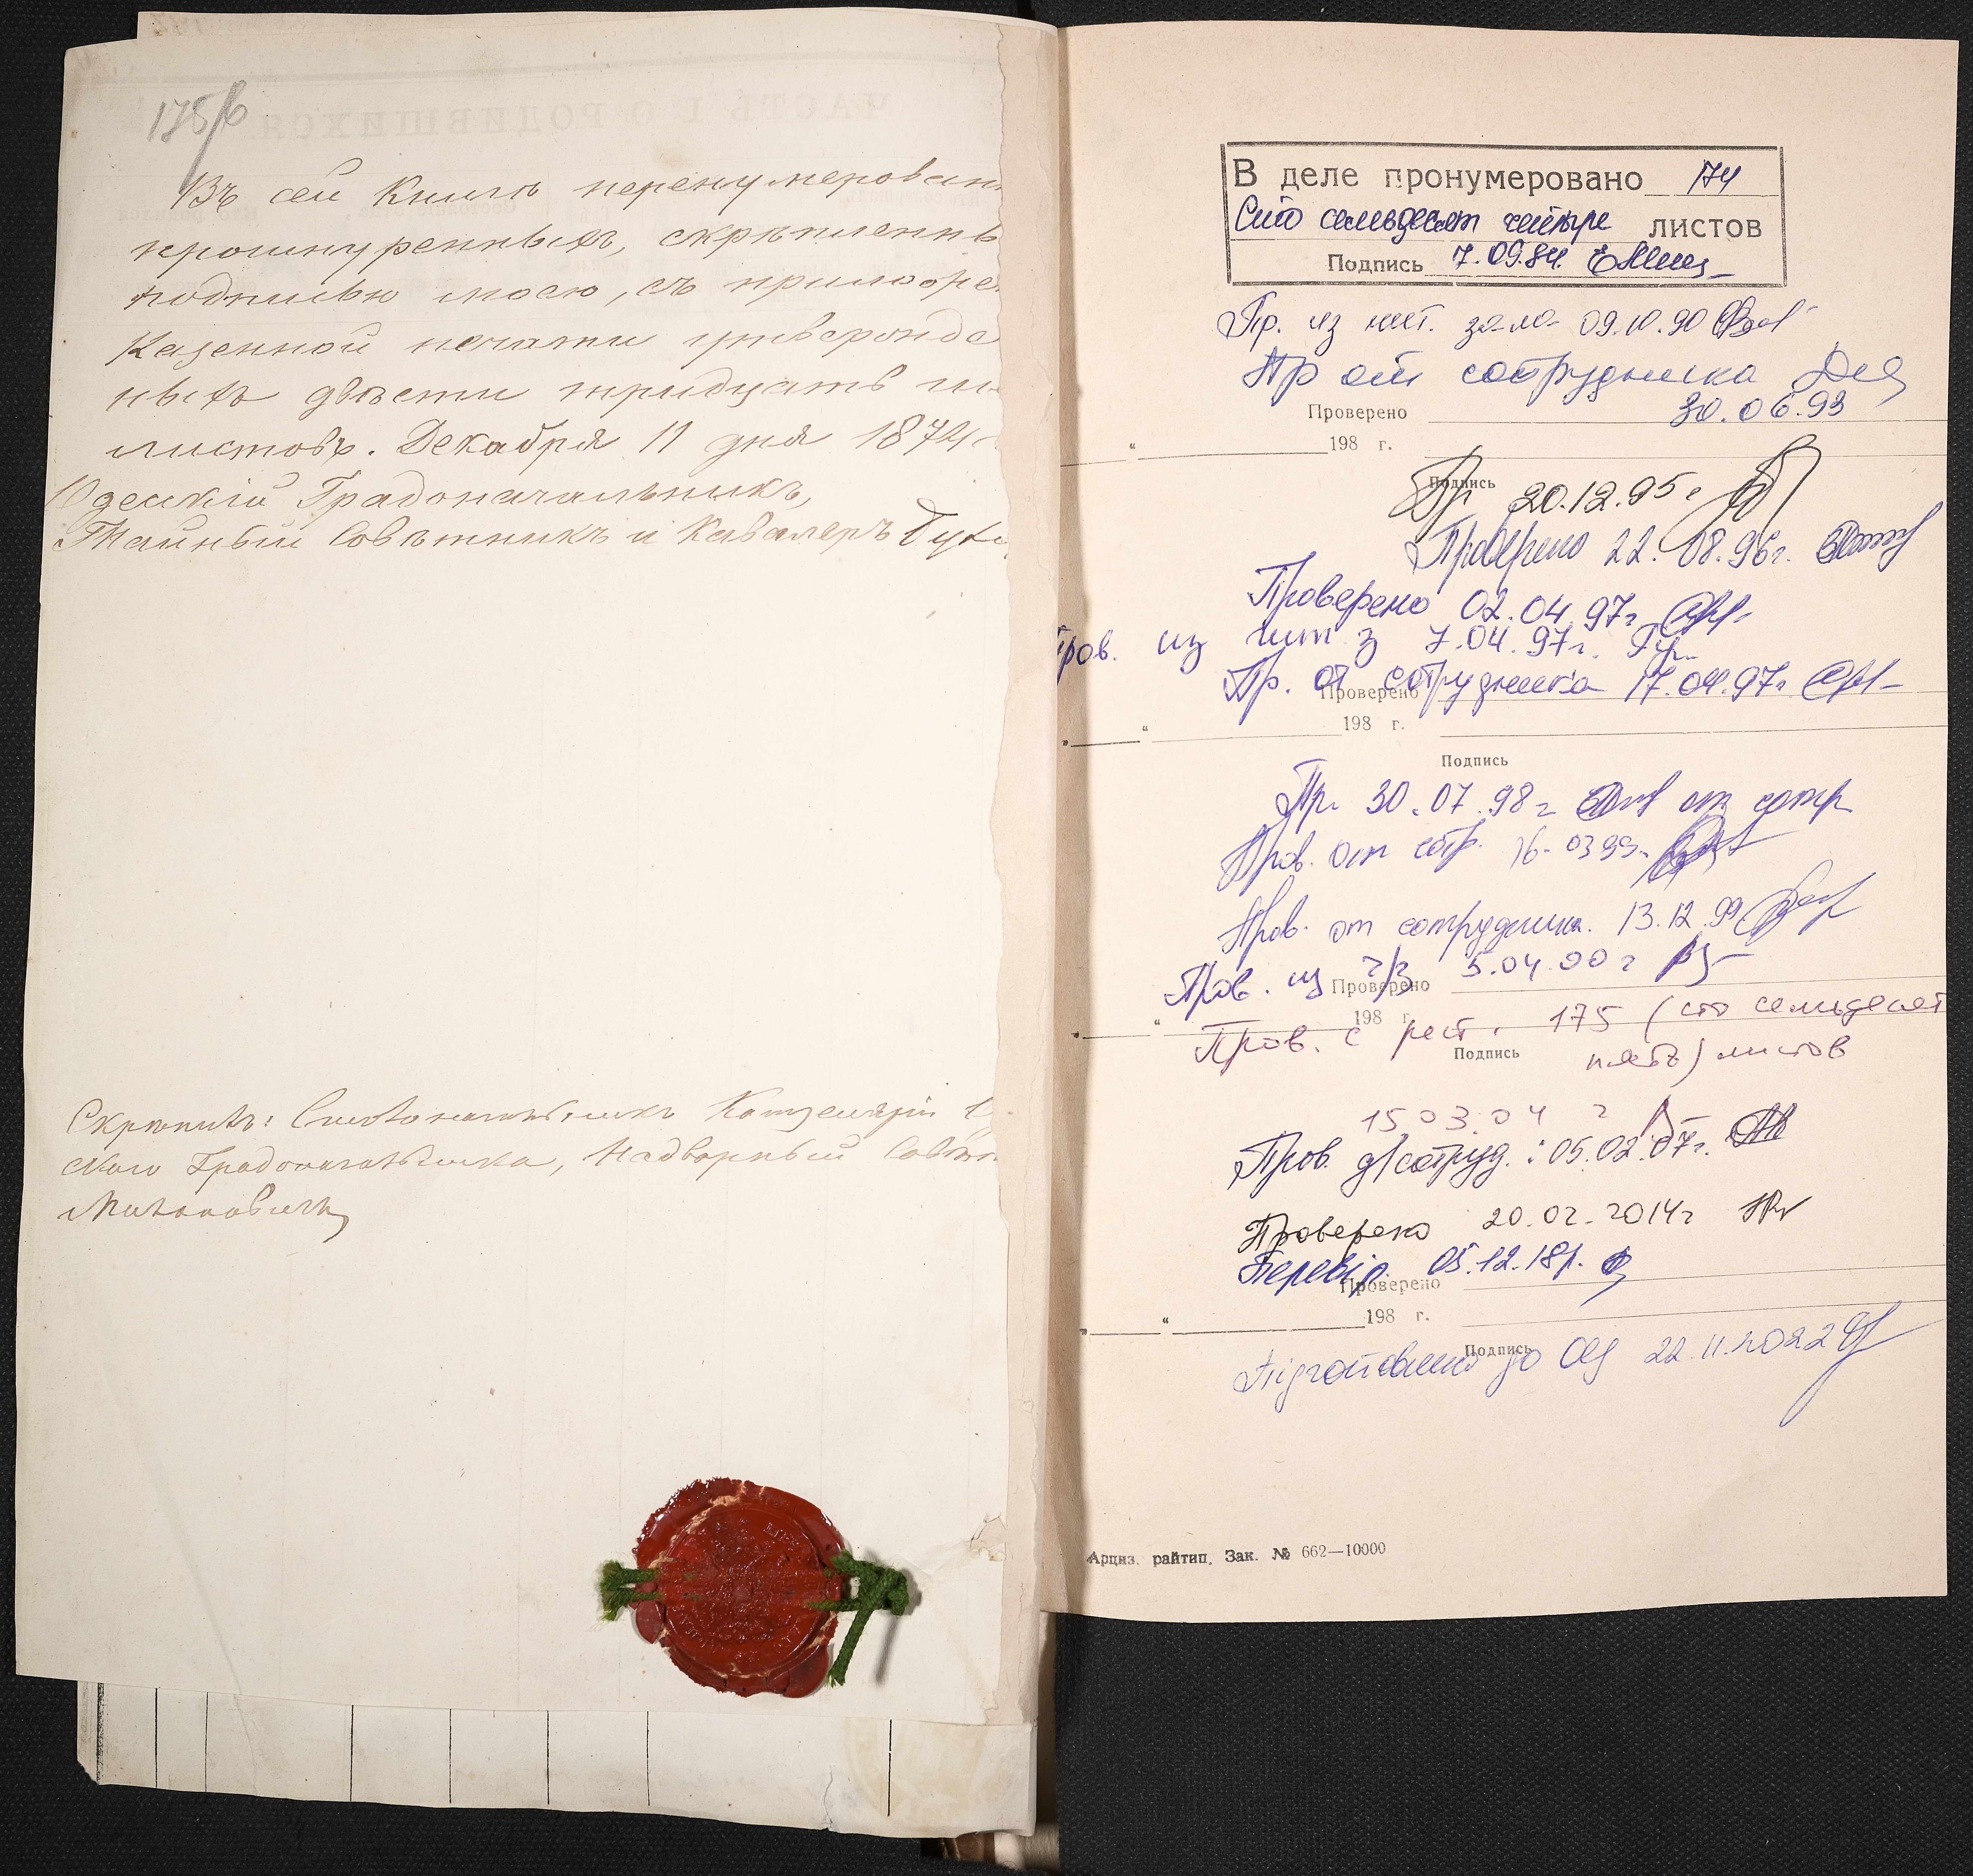 175/б
ЧАСТЬ I О РОДИВШИХСЯ
Въ сей Книгѣ перенумерован
прошнуренныхъ, скрѣпленны
подписью моею, съ приложе
Казенной печати утвержде
ныхъ двѣсти тридцать
листовъ. Декабря 11 дня 1874
Одесскій Градоначальникъ,
Тайный Совѣтникъ и Кавалеръ Бух
Скрѣпилъ: Канцеляріи
скаго Градоначальника, Надворный Совѣтн
В деле пронумеровано 174
Сто семьдесят четыре листов
Подпись 7.09.84.
Пр. из чит. зала 09.10.90
Пр от сотрудника
30.06.93
Проверено
„ “ 198 г.
Подпись
Пр 20.12.95г
Проверено 22.08.96г.
Проверено 02.04.97г
Пров. из чит з 7.04.97г.
Пр. от сотрудника 17.04.97г
Проверено
„ “ 198 г.
Подпись
Пр. 30.07.98г от сотр
Пров. от сотр. 16.03.99.
Пров. от сотрудника. 13.12.99
Пров. из ч/з 5.04.00г
Проверено
„ “ 198 г.
Пров. с рест. 175 (сто семьдесят
Подпись
пять) листов
15.03.04 г
Пров. д/сотруд.: 05.02.07г.
Проверено 20.02.2014г
Перевір. 05.12.18р.
Проверено
„ “ 198 г.
Подпись
Підготовлено до 22.11.2022
Арциз. райтип. Зак. № 662—10000